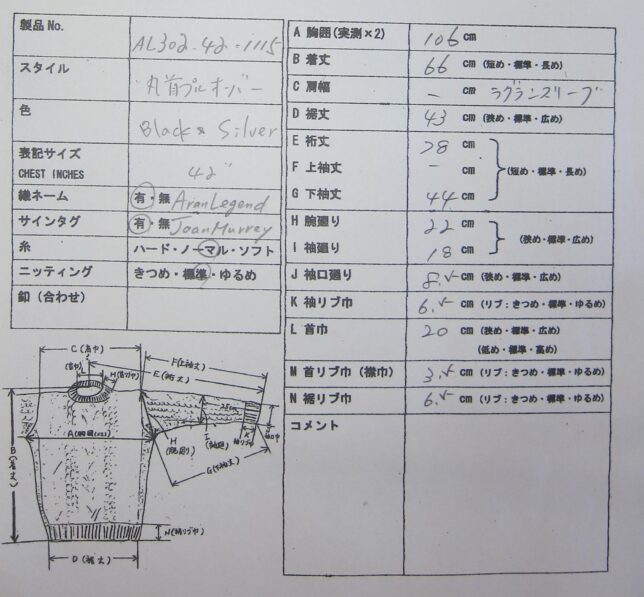 製品No. AL302-42-1115
スタイル 丸首プルオーバー
色 Black & Silver
表記サイズ
CHEST INCHES 42"
織ネーム 有・無 Aran Legend
サインタグ 有・無 Joan Murrey
糸 ハード・ノーマル・ソフト
ニッティング きつめ・標準・ゆるめ
釦（合わせ）
A 胸囲(実測×2) 106 cm
B 着丈 66 cm (短め・標準・長め)
C 肩幅 - cm ラグランスリーブ
D 裾丈 43 cm (狭め・標準・広め)
E 裄丈 78 cm
F 上袖丈 - cm (短め・標準・長め)
G 下袖丈 44 cm
H 腕廻り 22 cm
I 袖廻り 18 cm (狭め・標準・広め)
J 袖口廻り 8.5 cm (狭め・標準・広め)
K 袖リブ巾 6.5 cm (リブ：きつめ・標準・ゆるめ)
L 首巾 20 cm (狭め・標準・広め)
(低め・標準・高め)
M 首リブ巾（襟巾） 3.5 cm (リブ：きつめ・標準・ゆるめ)
N 裾リブ巾 6.5 cm (リブ：きつめ・標準・ゆるめ)
コメント
C(肩巾)
F(上袖丈)
E(裄丈)
L
B(着丈)
H(腕廻り)
I
K
G(下袖丈)
N(裾リブ巾)
D(裾丈)